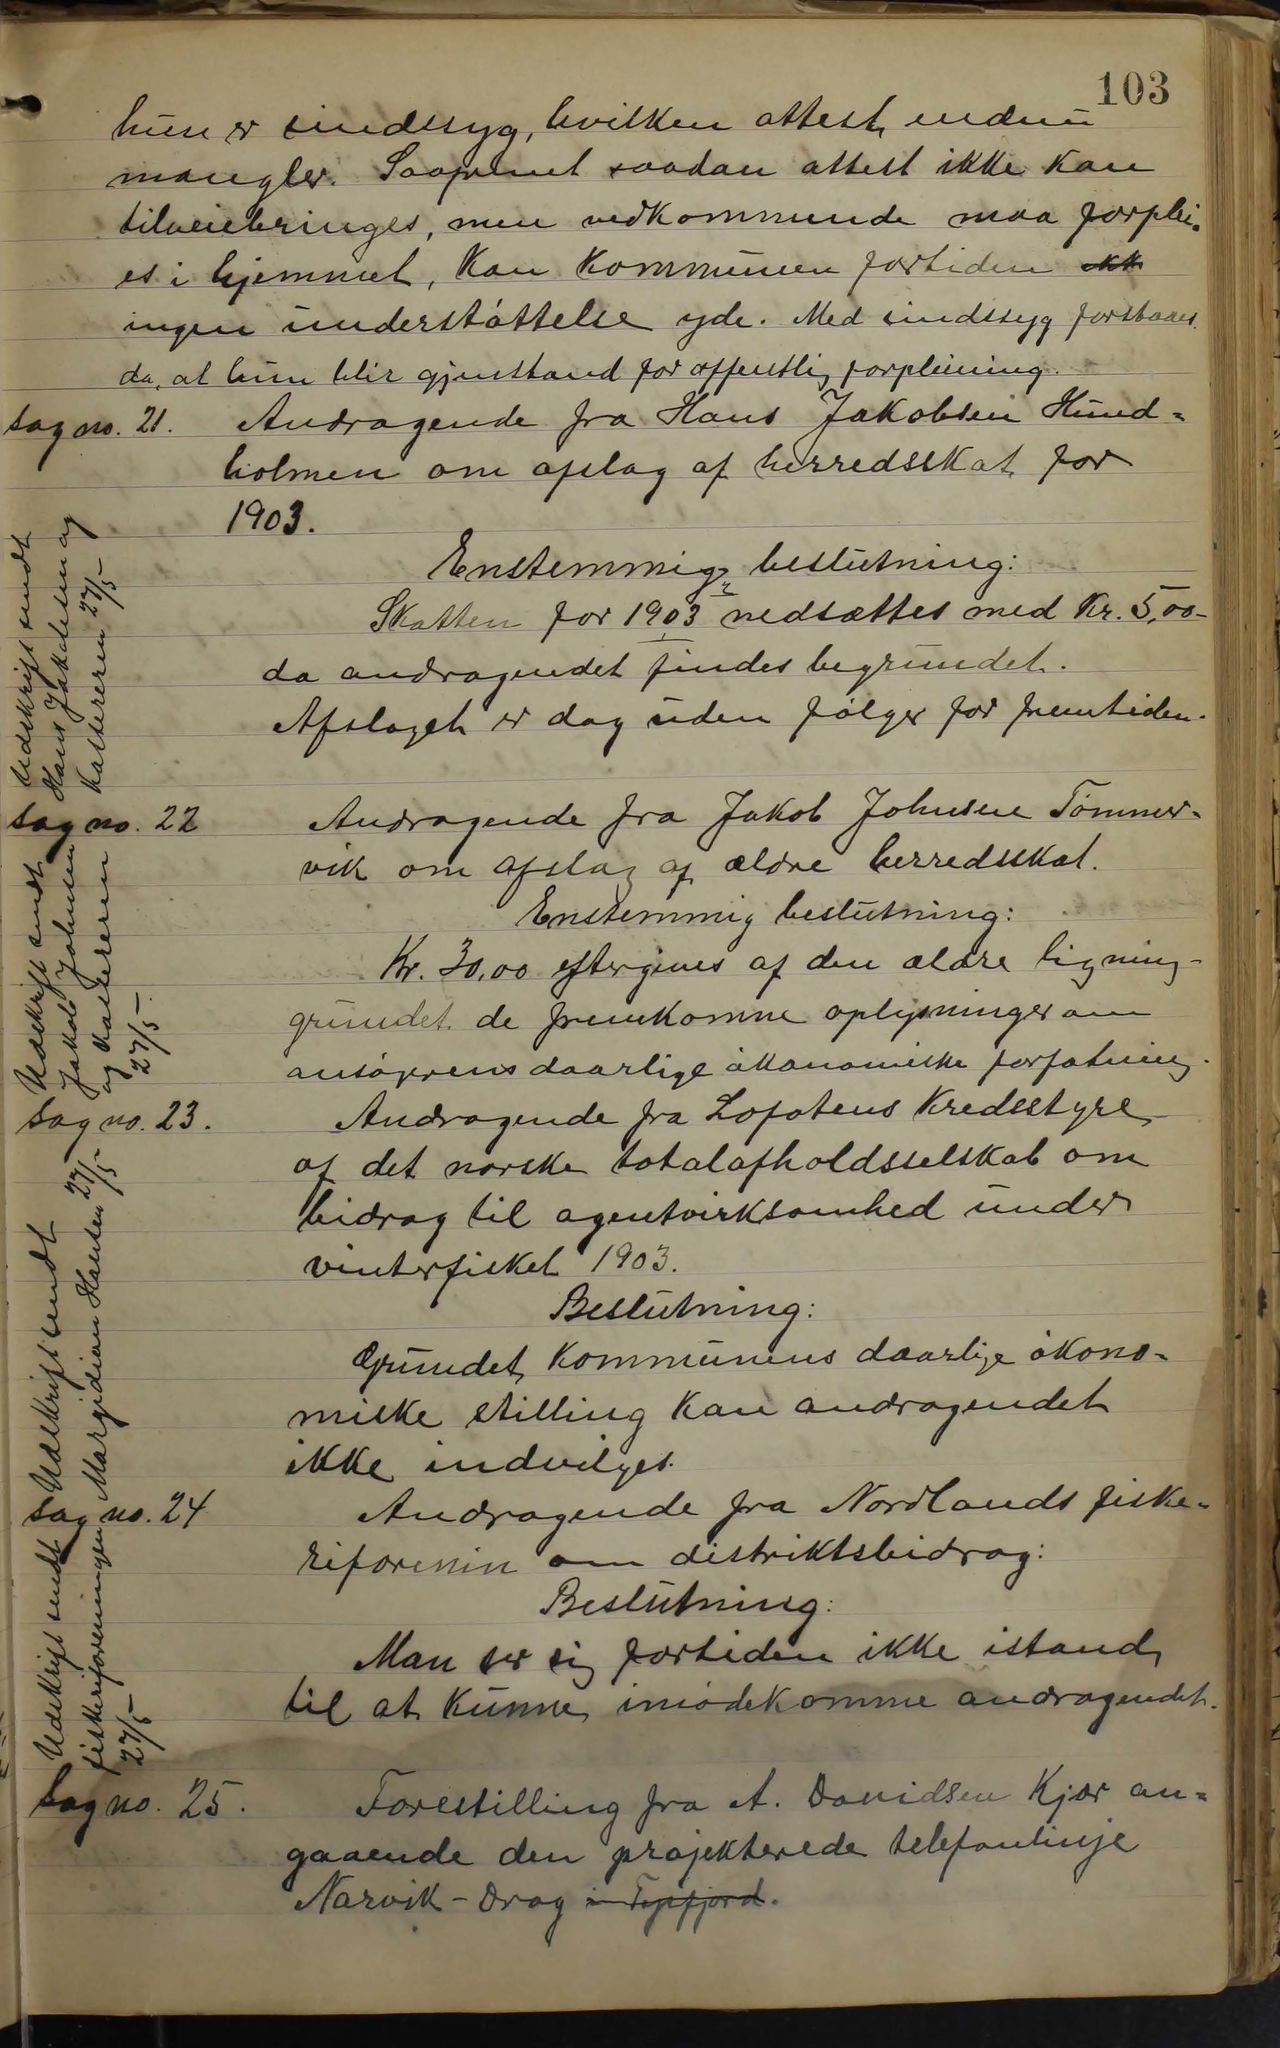 103
hun er sindssyg, hvilken attest endnu
mangler. Saafremt saadan attest ikke kan
tilveiebringes, men vedkommende maa forplei-
es i hjemmet, kan kommunen fortiden ikk
ingen understøttelse yde. Med sindssyg forstaaes
da, at hun blir gjenstand for offentlig forpleining.
Sag no. 21. Andragende fra Hans Jakobsen Hund-
holmen om afslag af herredsskat for
1903.
Enstemmig beslutning:
Skatten for 1903 nedsættes med Kr. 5,00-
da andragendet findes begrundet.
Afslaget er dog uden følger for fremtiden.
Udskrift sendt
Hans Jakobsen og
kassereren 27/5-
Sag no. 22 Andragende fra Jakob Johnsen Tømmer-
vik om afslag af ældre herredsskat.
Enstemmig beslutning:
Kr. 30,00 eftergives af den ældre ligning-
grundet de fremkomne oplysninger om
ansøgerens daarlige økonomiske forfatning.
Udskrift sendt
Jakob Johnsen
og kassereren
27/5-
Sag no. 23. Andragende fra Lofotens Kredsstyre
af det norske totalafholdsselskab om
bidrag til agentvirksomhed under
vinterfisket 1903.
Beslutning:
Grundet kommunens daarlige økono-
miske stilling kan andragendet
ikke indvilges.
Udskrift sendt
Margidian Hansen 27/5-
Sag no. 24 Andragende fra Nordlands fiske-
riforenin om distriktsbidrag:
Beslutning:
Man ser sig fortiden ikke istand
til at kunne imødekomme andragendet.
Udskrift sendt
fiskeriforeningen
27/5
Sag no. 25. Forestilling fra A. Davidsen Kjær an-
gaaende den projekterede telefonlinje
Narvik - Drag i Tysfjord.